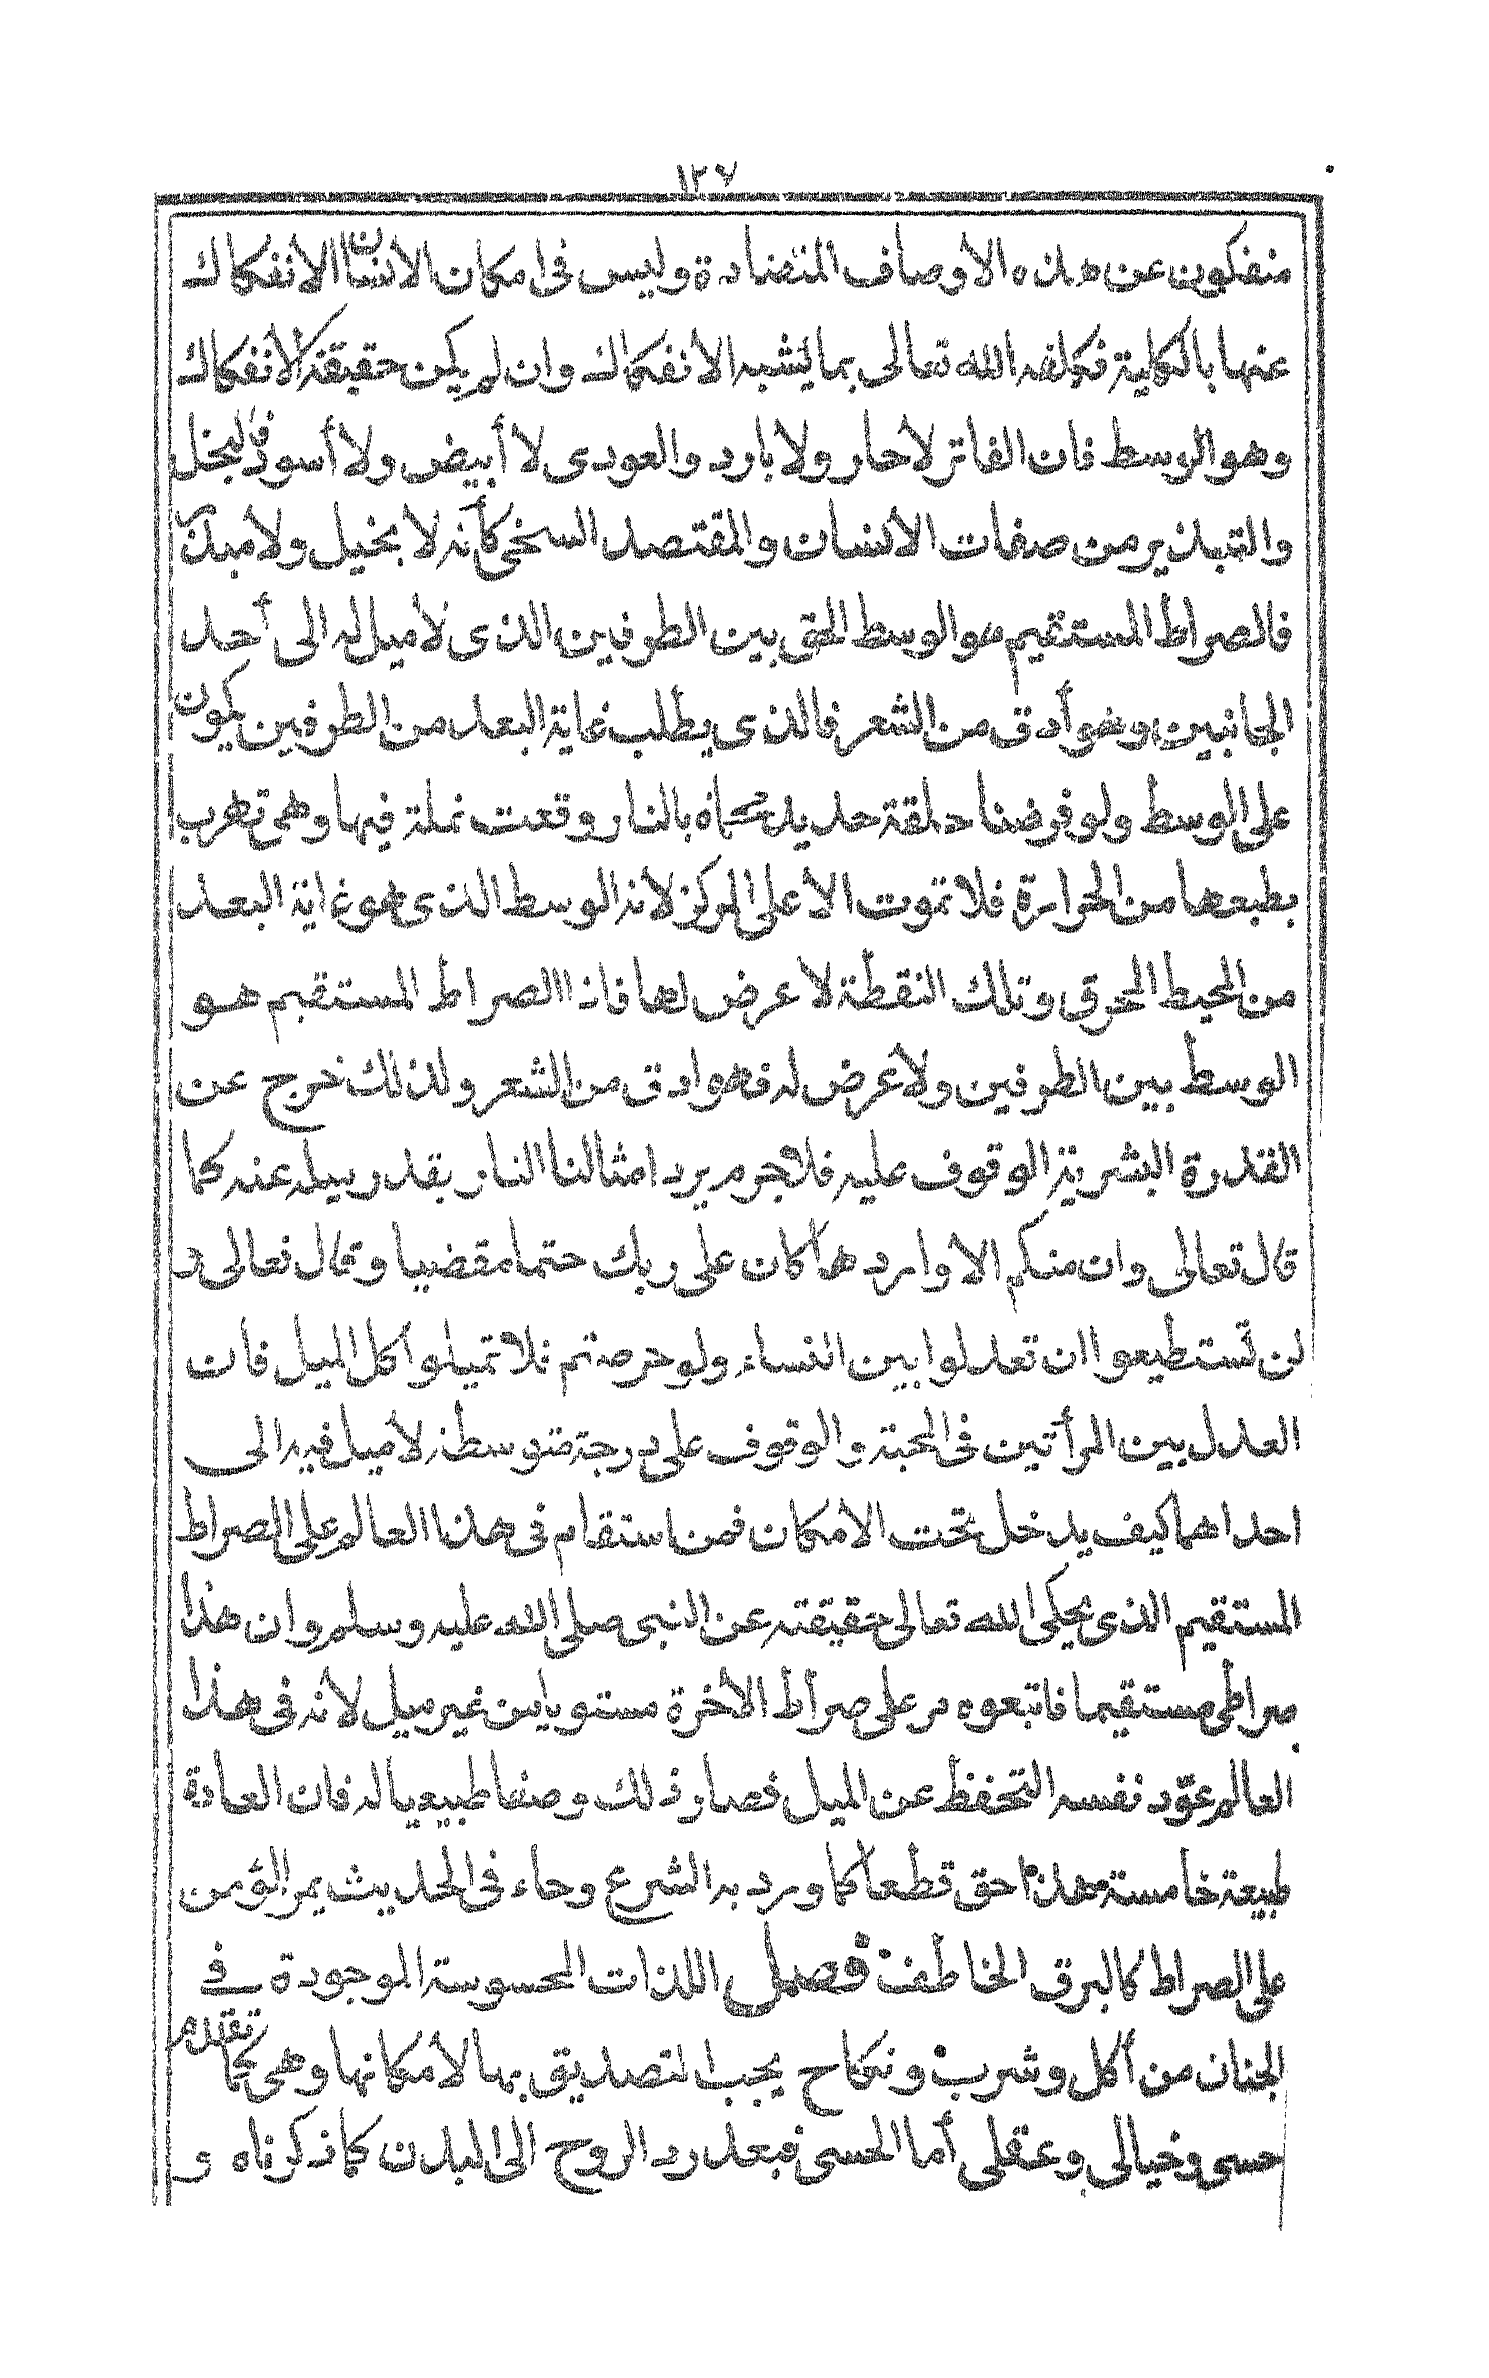 ١٢٧
منفكون عن هذه الاوصاف المتضادة وليس فى امكان الانسان الانفكاك
عنها بالكلية فكلفه الله تعالى بما يشبه الانفكاك وان لم يكن حقيقة الانفكاك
وهو الوسط فان الفاتر لا حار ولا بارد والعودى لا أبيض ولا أسود فالبخل
والتبذير من صفات الانسان والمقتصد السخى كأنه لا بخيل ولا مبذر
فالصراط المستقيم هو الوسط الحق بين الطرفين الذى لا ميل له الى أحد
الجانبين وهو أدق من الشعر فالذى يطلب غاية البعد من الطرفين يكون
على الوسط ولو فرضنا حلقة حديد محماة بالنار وقعت نملة فيها وهى تهرب
بطبعها من الحرارة فلا تموت الا على المركز لانه الوسط الذى هو غاية البعد
من المحيط المحرق وتلك النقطة لا عرض لها فاذا الصراط المستقيم هو
الوسط بين الطرفين ولا عرض له فهو ادق من الشعر ولذلك خرج عن
القدرة البشرية الوقوف عليه فلا جرم يرد امثالنا النار بقدر ميله عنه كما
قال تعالى وان منكم الا واردها كان على ربك حتما مقضيا وقال تعالى و
لن تستطيعوا ان تعدلوا بين النساء ولو حرصتم فلا تميلوا كل الميل فان
العدل بين المرأتين فى المحبة والوقوف على درجة متوسطة لا ميل فيه الى
احداهما كيف يدخل تحت الامكان فمن استقام فى هذا العالم على الصراط
المستقيم الذى يحكى الله تعالى حقيقته عن النبى صلى الله عليه وسلم وان هذا
صراطى مستقيما فاتبعوه مر على صراط الاخرة مستويا من غير ميل لانه فى هذا
العالم عوّد نفسه التحفظ عن الميل فصار ذلك وصفا طبيعيا له فان العادة
طبيعة خامسة هذا حق قطعا كما ورد به الشرع وجاء فى الحديث يمر المؤمن
على الصراط كالبرق الخاطف فصل اللذات المحسوسة الموجودة فى
الجنان من أكل وشرب ونكاح يجب التصديق بها لامكانها وهى كما تقدم
حسى وخيالى وعقلى أما الحسى فبعد رد الروح الى البدن كما ذكرناه و